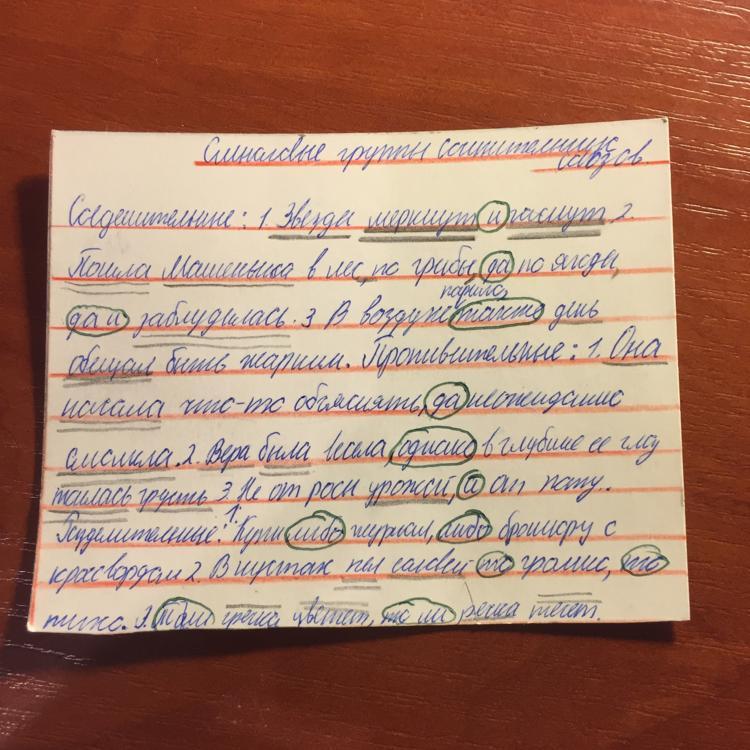 Смысловые группы сочинительных
союзов.
Соединительные: 1. Звезды меркнут и гаснут 2.
Пошла Машенька в лес, по грибы, да по ягоды,
да и заблудилась. 3 В воздухе парило, также день
обещал быть жарким. Противительные: 1. Она
начала что-то объяснять, да неожиданно
смолкла. 2. Вера была весела, однако в глубине ее глаз
таилась грусть 3. Не от росы урожай, а от поту.
Разделительные: 1. Купи либо журнал, либо брошюру с
кроссвордом 2. В кустах пел соловей то громко, то
тихо. 3. То ли гречка цветет, то ли речка течет.